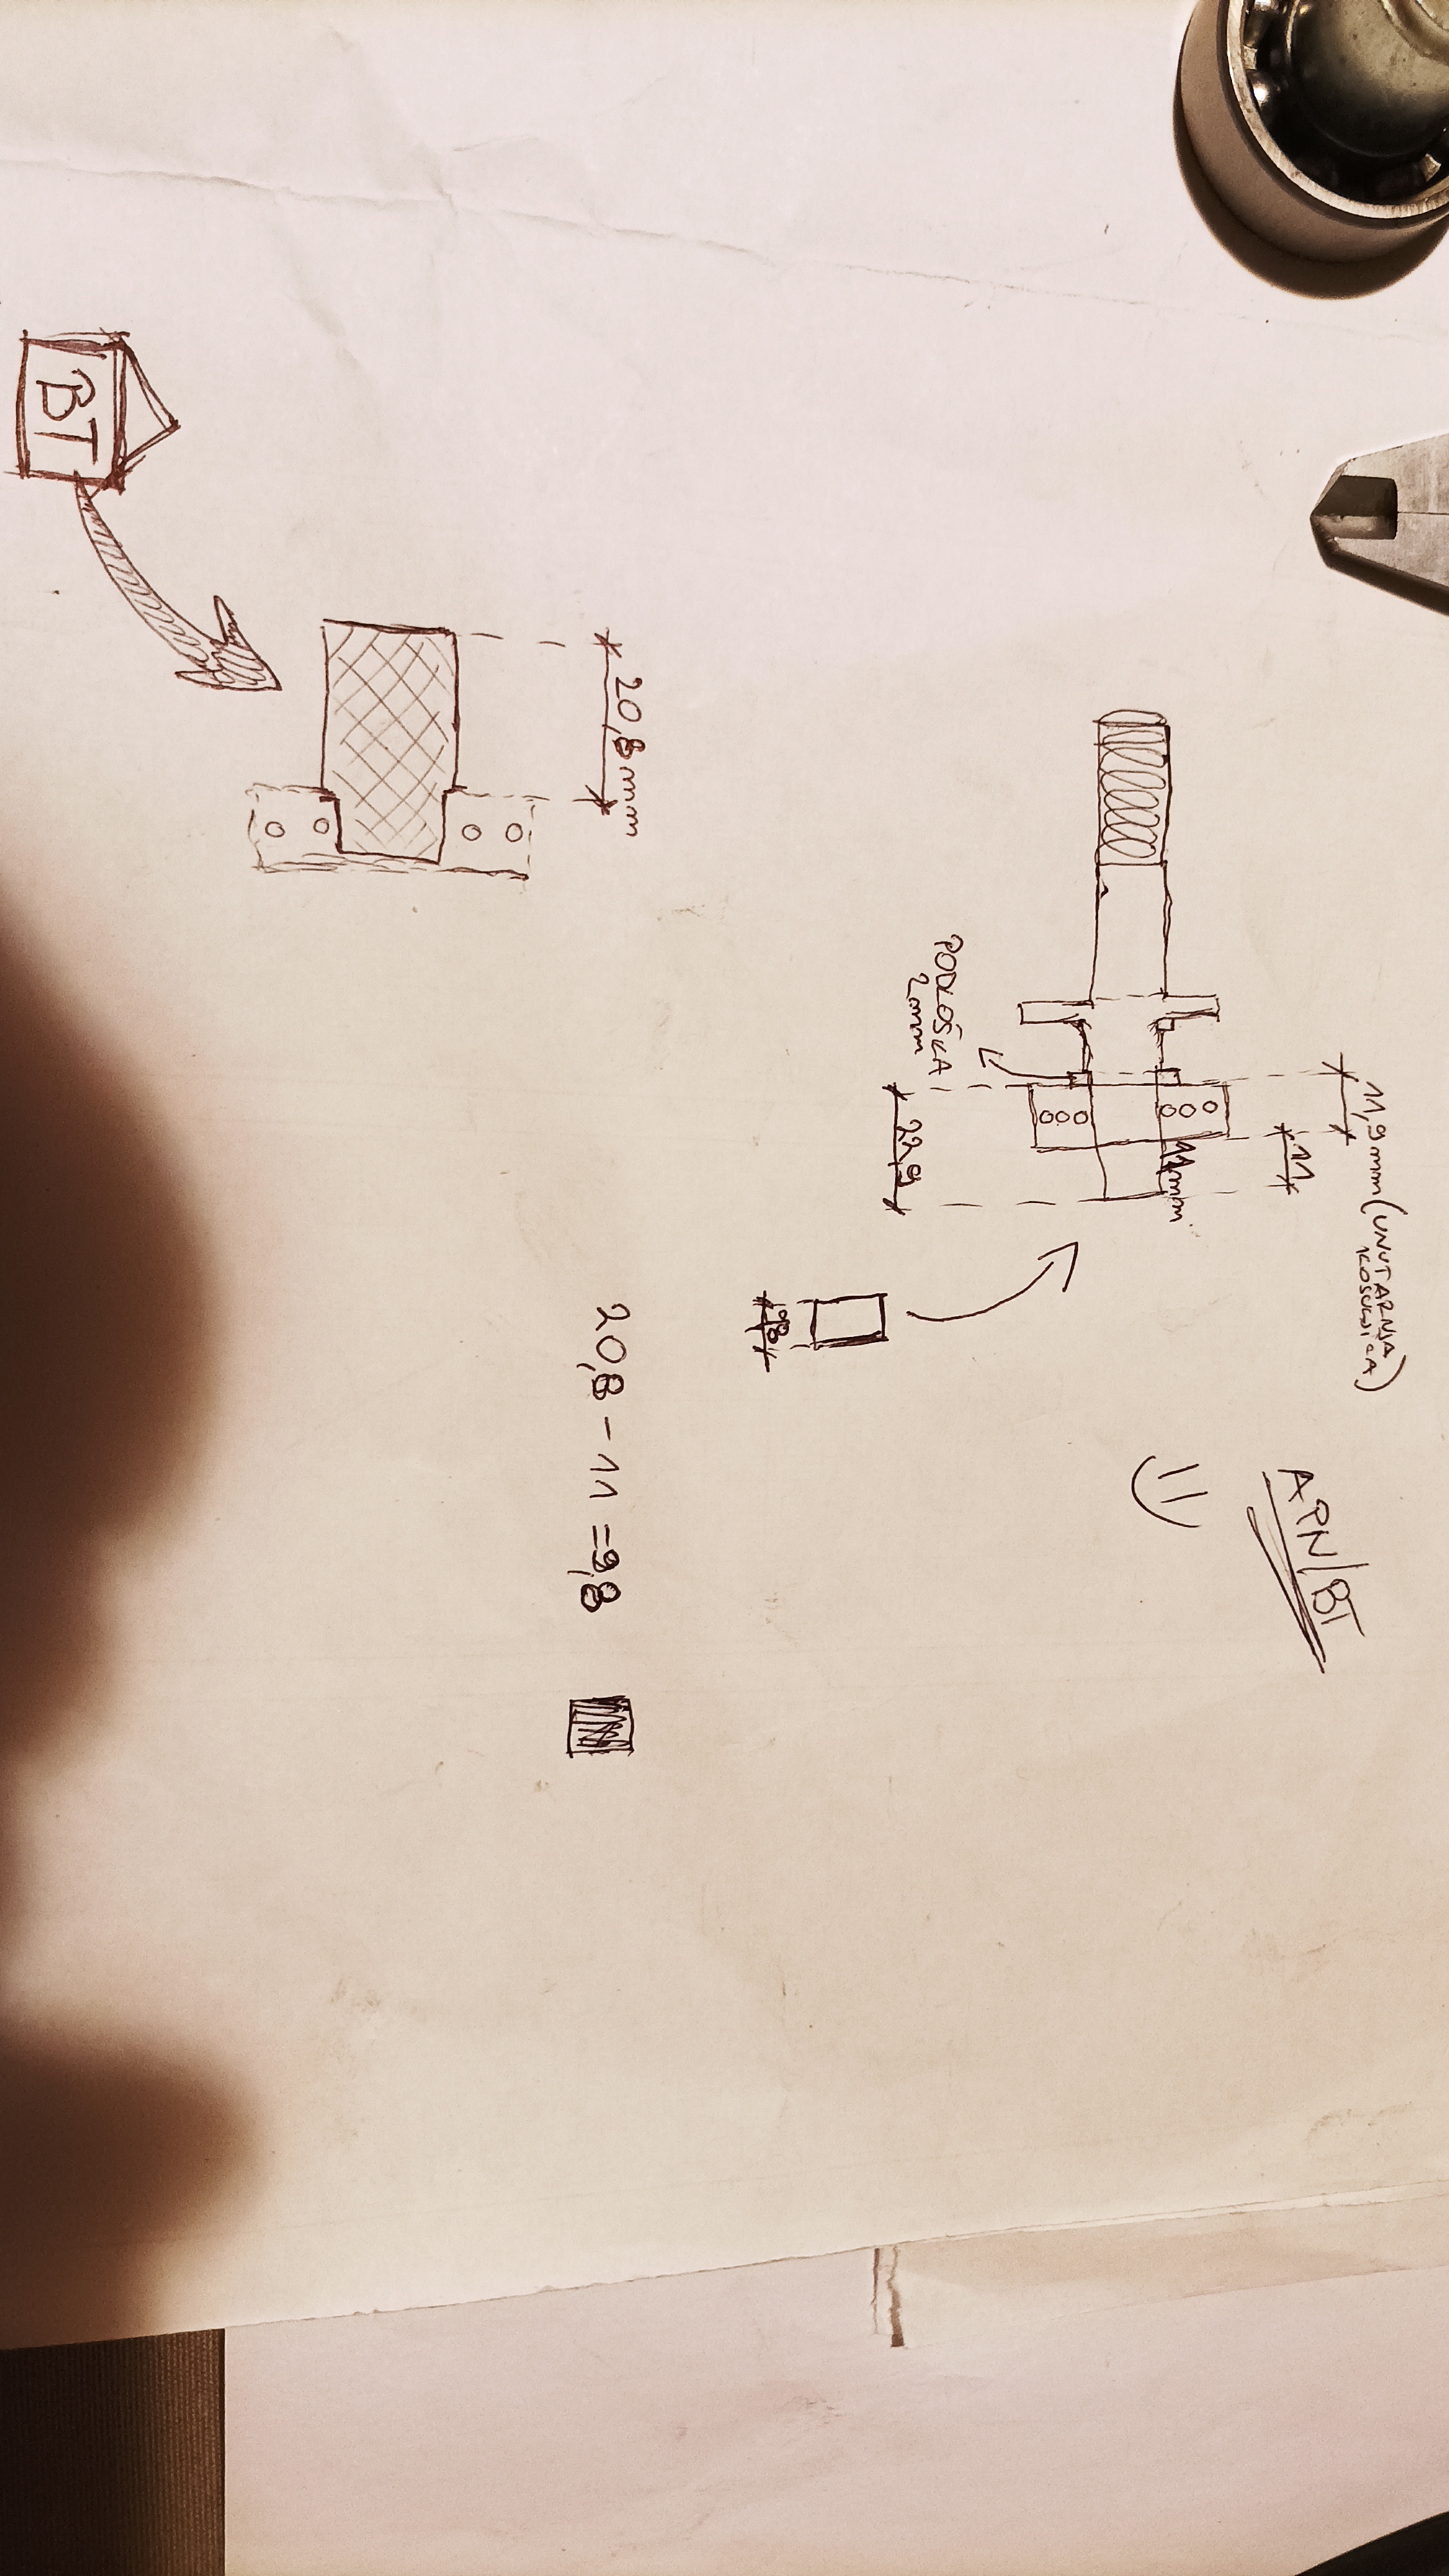 11,9mm (UNUTARNJA
KOŠULJICA)
11
11mm
APN/BT
PODLOŠKA
2mm
22,9
9,8
20,8mm
20,8 - 11 = 9,8
BT